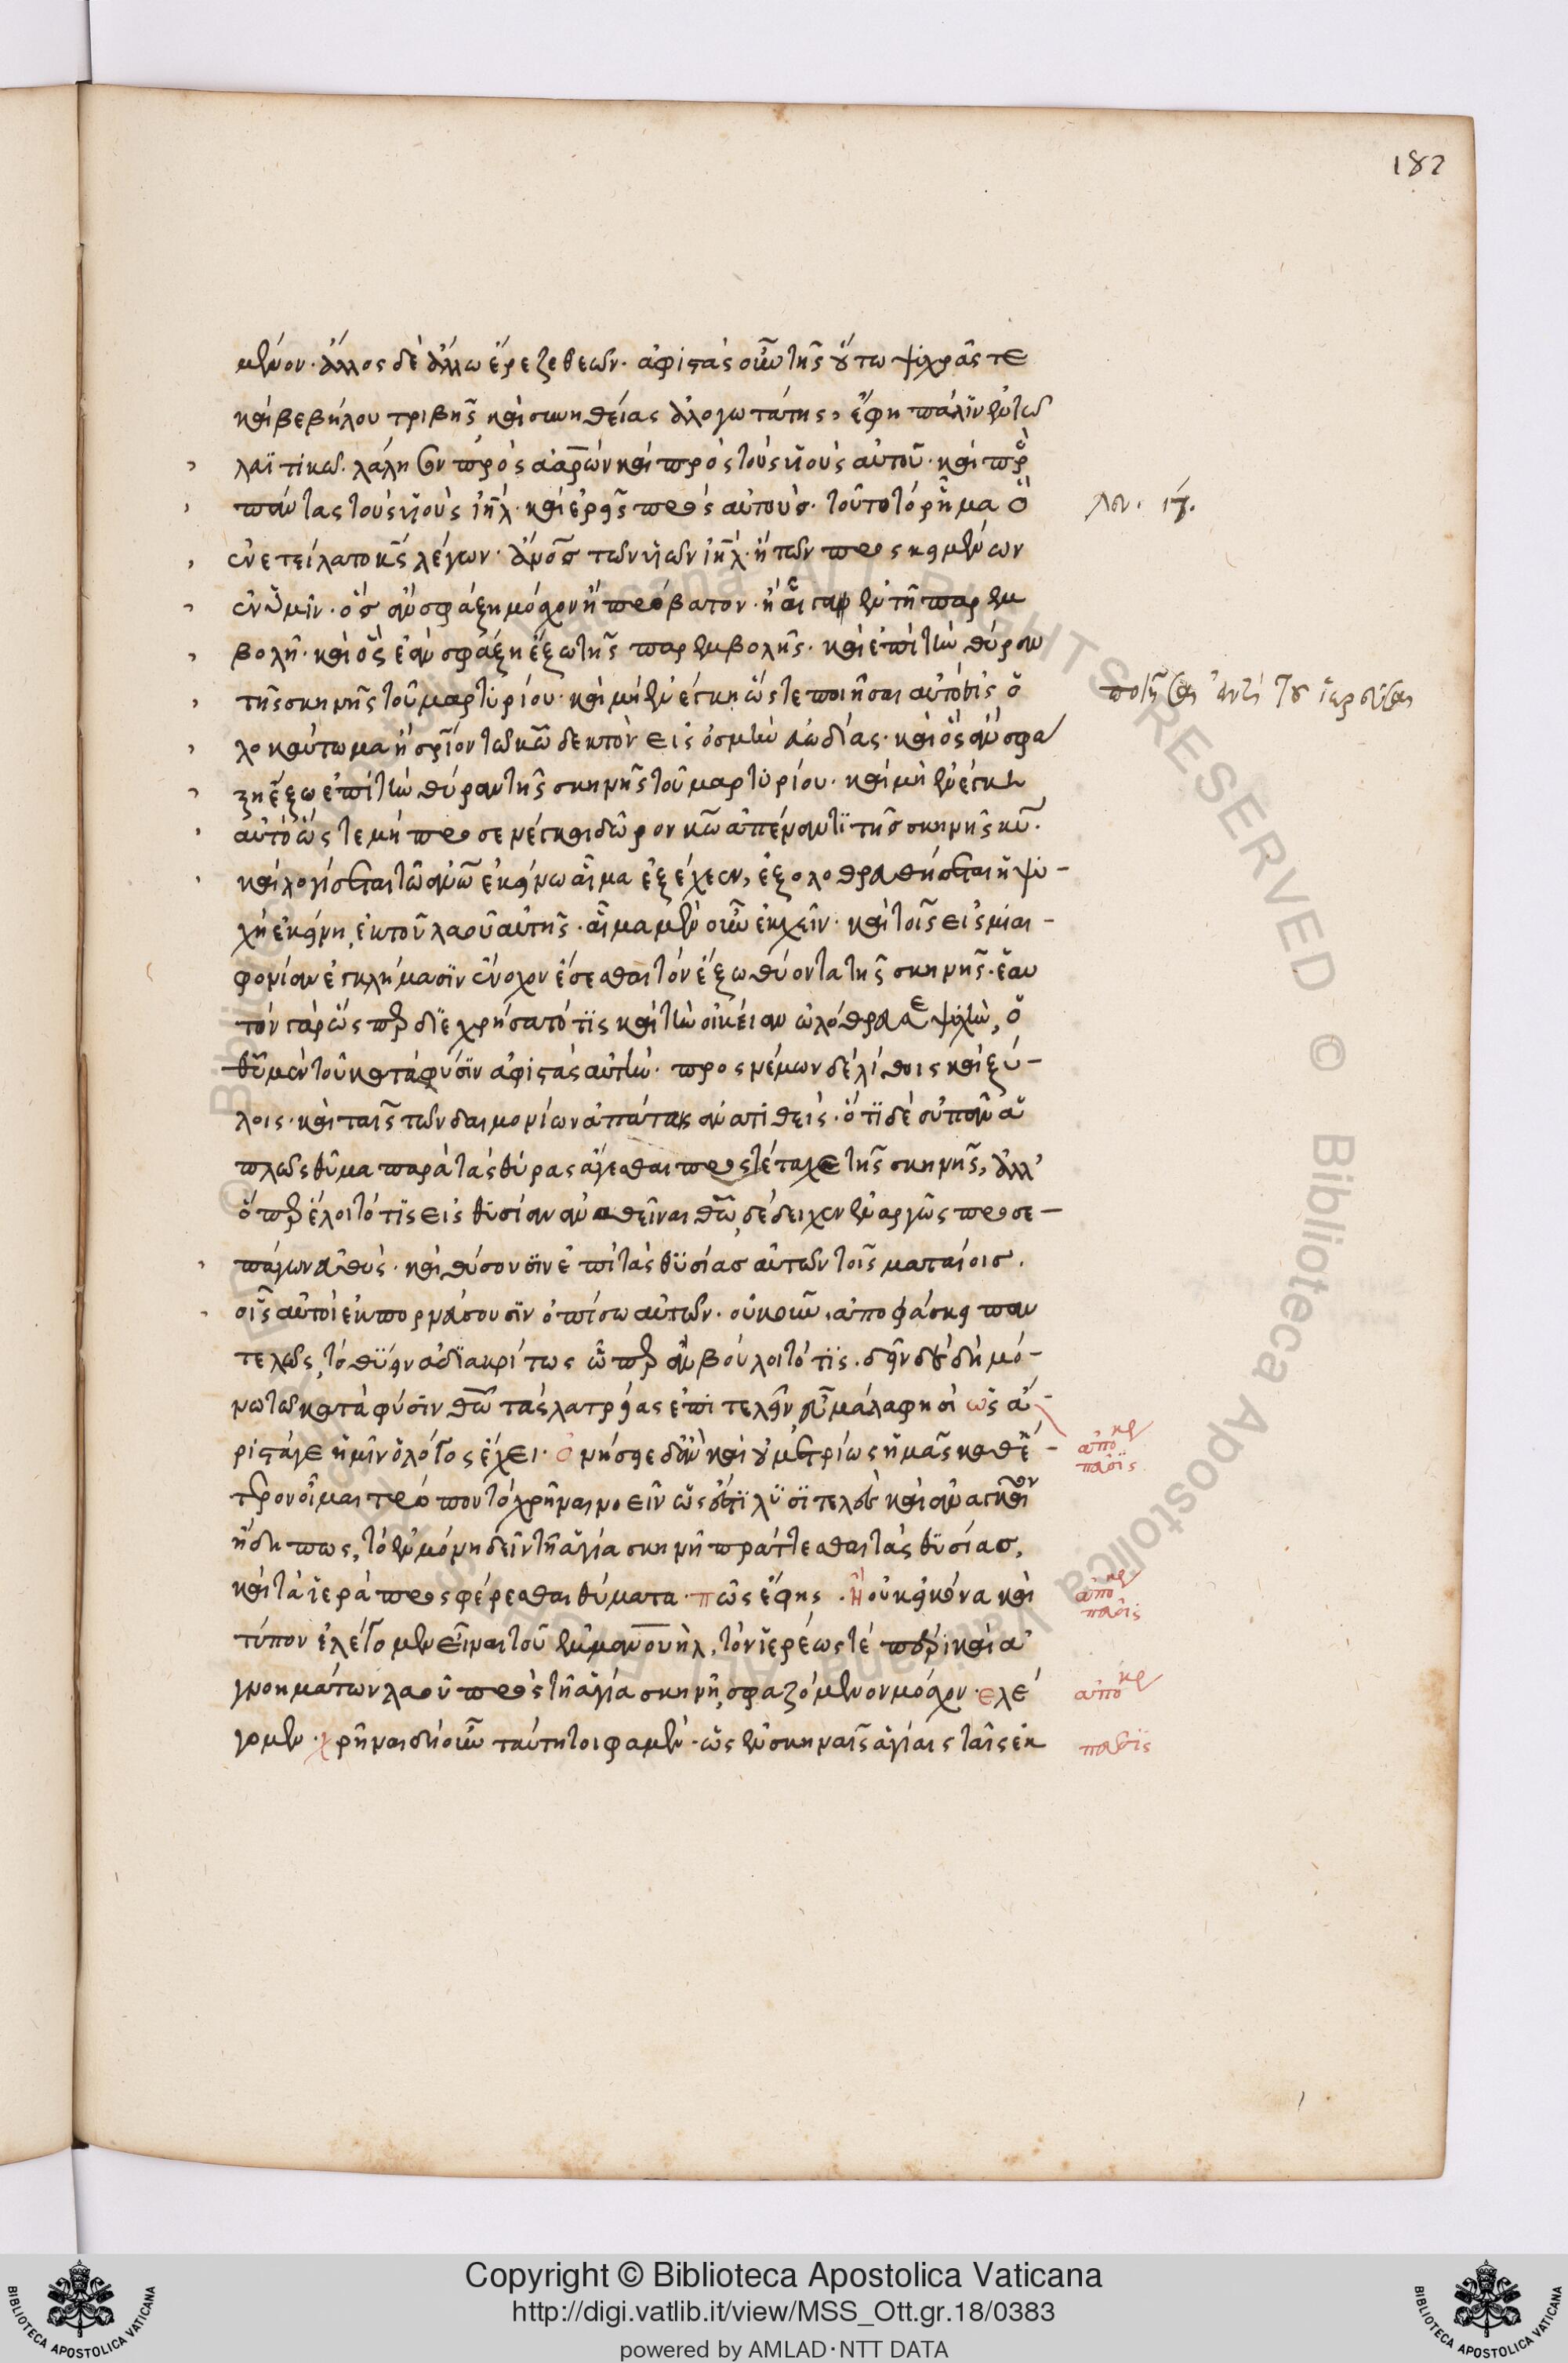 182
μενον· ἄλλος δὲ ἄλλω ἔρεζε θεῶν· ἀφιστὰς οὖν τῆς οὕτω ψυχρᾶς τε
καὶ βεβήλου τριβῆς καὶ συνηθείας ἀλογωτάτης, ἔφη πάλιν ἐν τῶ
λαϊτικῶ. λάλησον πρὸς ἀαρὼν καὶ πρὸς τοὺς υἱοὺς αὐτοῦ· καὶ πρὸς
πάντας τοὺς υἱοὺς ἰηλ· καὶ ἐρεῖς πρὸς αὐτούς· τοῦτο τὸ ῥῆμα ὃ
ἐνετείλατο κς λέγων· ἄνος ανος τῶν υἱῶν ἰηλ· ἢ τῶν προσκειμένων
ἐν ὑμῖν· ὃς ἂν σφάξη μόσχον ἢ πρόβατον· ἢ αἶγα ἐν τῆ παρεμ
βολῆ· καὶ ὃς ἐὰν σφάξη ἔξω τῆς παρεμβολῆς· καὶ ἐπὶ τὴν θύραν
τῆς σκηνῆς τοῦ μαρτυρίου· καὶ μὴ ἐνέγκη ὥστε ποιῆσαι αὐτὸ εἰς ὁ
λοκαύτωμα ἢ σριον τῶ κω δεκτὸν εἰς ὀσμὴν εὐωδίας· καὶ ὃς ἂν σφα
ξη ἔξω ἐπὶ τὴν θύραν τῆς σκηνῆς τοῦ μαρτυρίου· καὶ μὴ ἐνέγκη
αὐτὸ ὥστε μὴ προσενέγκαι δῶρον κω ἀπέναντι τῆς σκηνῆς κυ.
καὶ λογισθήσεται τῶ ανω ἐκείνω αἷμα ἐξέχεεν, ἐξολοθρευθήσεται ἡ ψυ-
χὴ ἐκείνη, ἐκ τοῦ λαοῦ αὐτῆς· αἷμα μὲν οὖν ἐκχεῖν· καὶ τοῖς εἰς μιαι-
φονίαν ἐγκλήμασιν ἔνοχον ἔσεσθαι τὸν ἔξω θύοντα τῆς σκηνῆς· ἑαυ
τὸν γὰρ ὥσπερ διεχρήσατό τις καὶ τὴν οἰκείαν ὠλόθρευσε ψυχὴν, θ
θῦμεν τοῦ κατὰ φύσιν ἀφιστὰς αὐτὴν· προσνέμων δὲ λίθοις καὶ ξύ-
λοις· καὶ ταῖς τῶν δαιμονίων ἀπάταις ἀνατιθείς· ὅτι δὲ οὐ πᾶν ἁ
πλῶς θῦμα παρὰ τὰς θύρας ἄγεσθαι προστέταχε τῆς σκηνῆς, ἀλλ'
ὅπερ ἕλοιτό τις εἰς θυσίαν ἀναθεῖναι θω, δέδειχεν ἐναργῶς προσε-
πάγων εὐθύς· καὶ θύσουσιν ἐπὶ τὰς θυσίας αὐτῶν τοῖς ματαίοις.
οἷς αὐτοὶ ἐκπορνεύσουσιν ὀπίσω αὐτῶν· οὐκοῦν, ἀποφάσκει παν
τελῶς, τὸ θύειν ἀδιακρίτως ὧπερ ἂν βούλοιτό τις. δεῖν δὲ δὴ μό-
νω τῶ κατὰ φύσιν θω τὰς λατρείας ἐπιτελεῖν, εὖ μάλα φησὶ ὡς ἀ-
ριστά γε ἡμῖν ὁ λόγος ἔχει· ὀνήσει δ' ἂν καὶ οὐ μετρίως ἡμᾶς καθ' ἕ-
τερον οἶμαι τρόπον τὸ χρῆναι νοεῖν ὡς ὅτι λυσιτελὲς καὶ ἀναγκαῖον
ἤδη πως, τὸ ἐν μόνη δεῖν τῆ ἁγία σκηνῆ πράττεσθαι τὰς θυσίας,
καὶ τὰ ἱερὰ προσφέρεσθαι θύματα· πῶς ἔφης. ἢ οὐκ εἰκόνα καὶ
τύπον ἐλέγομεν εἶναι τοῦ ἐμμανουὴλ, τὸν ἱερέως τέ πέρι καὶ ἀ
γνοημάτων λαοῦ πρὸς τῆ ἁγία σκηνῆ, σφαζόμενον μόσχον· ἐλέ
γομεν· χρῆναι δὴ οὖν ταύτη τοι φαμὲν· ὡς ἐν σκηναῖς ἁγίαις ταῖς ἐκ
λευ. ιζ.
ποιῆσαι ἀντὶ τοῦ ἱερεῦσαι
αποκρ
παλις
αποκρ
παλις
αποκρ
παλις
Copyright © Biblioteca Apostolica Vaticana
http://digi.vatlib.it/view/MSS_Ott.gr.18/0383
powered by AMLAD·NTT DATA
BIBLIOTECA APOSTOLICA VATICANA
BIBLIOTECA APOSTOLICA VATICANA